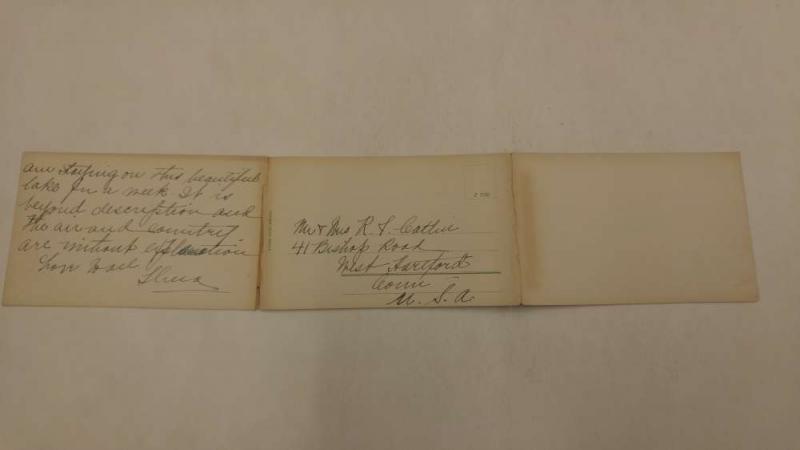 am staying on this beautiful
lake for a week It is
beyond description and
the air and country
are without
Love to all
Mr & Mrs R. S. Catlin
41 Bishop Road
West Hartford
Conn
U. S. A.